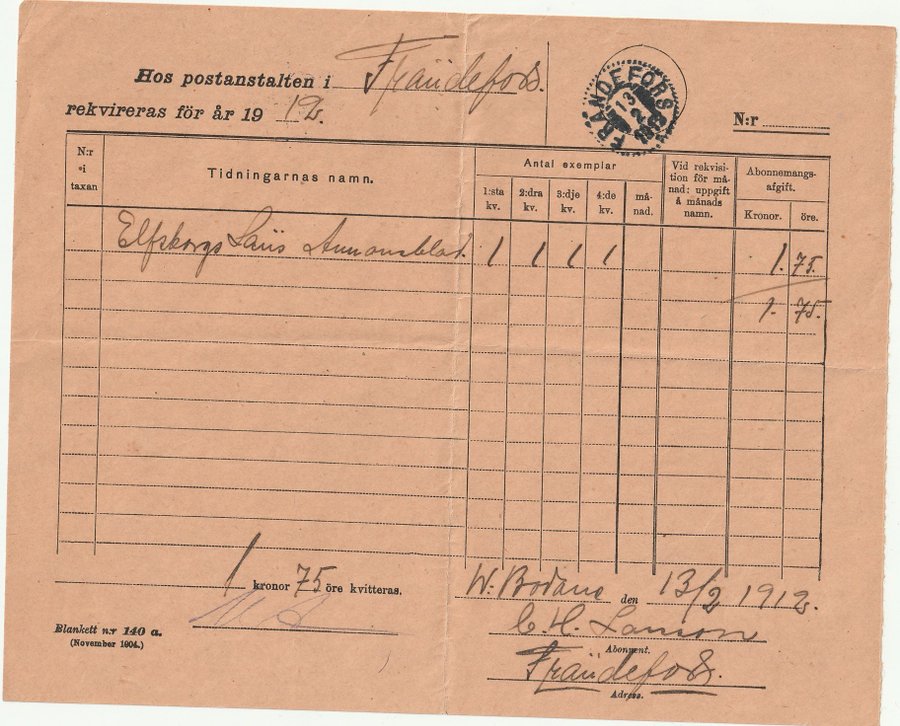 Hos postanstalten i Frändefors.
rekvireras för år 19 12.
FRÄNDEFORS
13
2
N:r
N:r i taxan
Tidningarnas namn.
Antal exemplar
1:sta kv.
2:dra kv.
3:dje kv.
4:de kv.
må-
nad.
Vid rekvisi-
tion för må-
nad: uppgift
å månads
namn.
Abonnemangs-
afgift.
Kronor. öre.
Elfsborgs Läns Annonsblad. 1 1 1 1 1. 75.
1. 75.
1 kronor 75 öre kvitteras.
W. Bodane den 13/2 1912.
C. H. Larsson
Abonnent.
Frändefors.
Adress.
Blankett n:r 140 a.
(November 1904.)